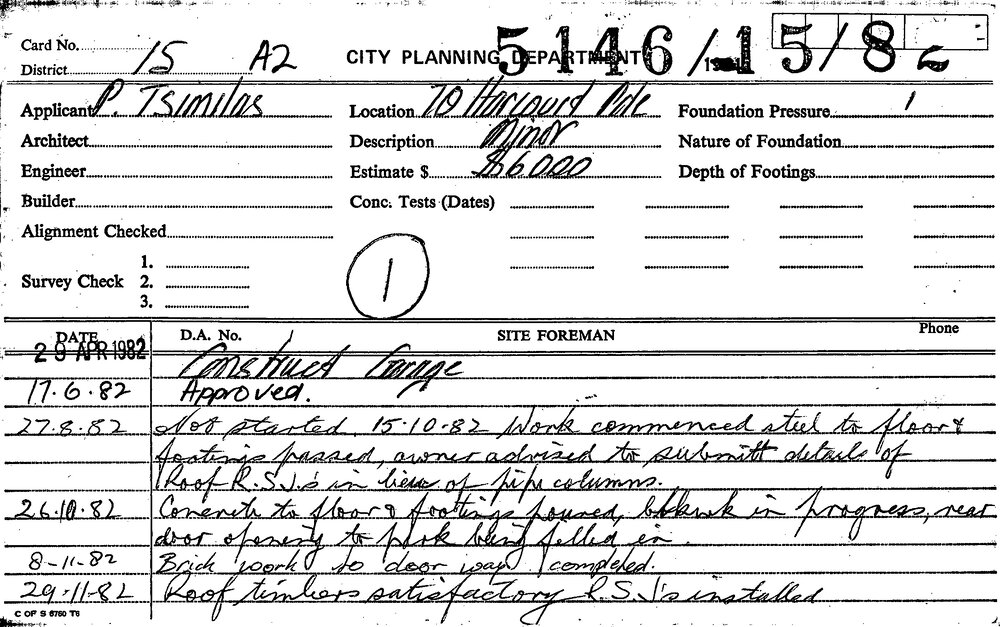 Card No. 15 A2 CITY PLANNING DEPARTMENT 5146/15/82
District
Applicant P. Tsimilas Location 70 Harcourt Pde Foundation Pressure
Architect Description Minor Nature of Foundation
Engineer Estimate $ $6000 Depth of Footings
Builder Conc. Tests (Dates)
Alignment Checked
1.
Survey Check 2. 1
3.
DATE D.A. No. SITE FOREMAN Phone
29 APR 1982 Construct Garage
17.6.82 Approved.
27.8.82 Not started. 15.10.82 Work commenced steel to floor &
footings passed, owner advised to submitt details of
Roof R.S.J.'s in lieu of pipe columns.
26.10.82 Concrete to floor & footings poured, bkwk in progress, rear
door opening to park being filled in.
8-11-82 Brick work to door way completed.
29.11.82 Roof timbers satisfactory R.S.J's installed
C OF S 6750 T6